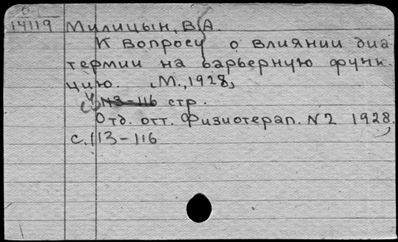 14119 Милицын, В.А.
К вопросу о влиянии диа
термии на барьерную функ-
цию. М., 1928,
113-116 стр.
Отд. отт. Физиотерап. N2 1928,
с. 113-116